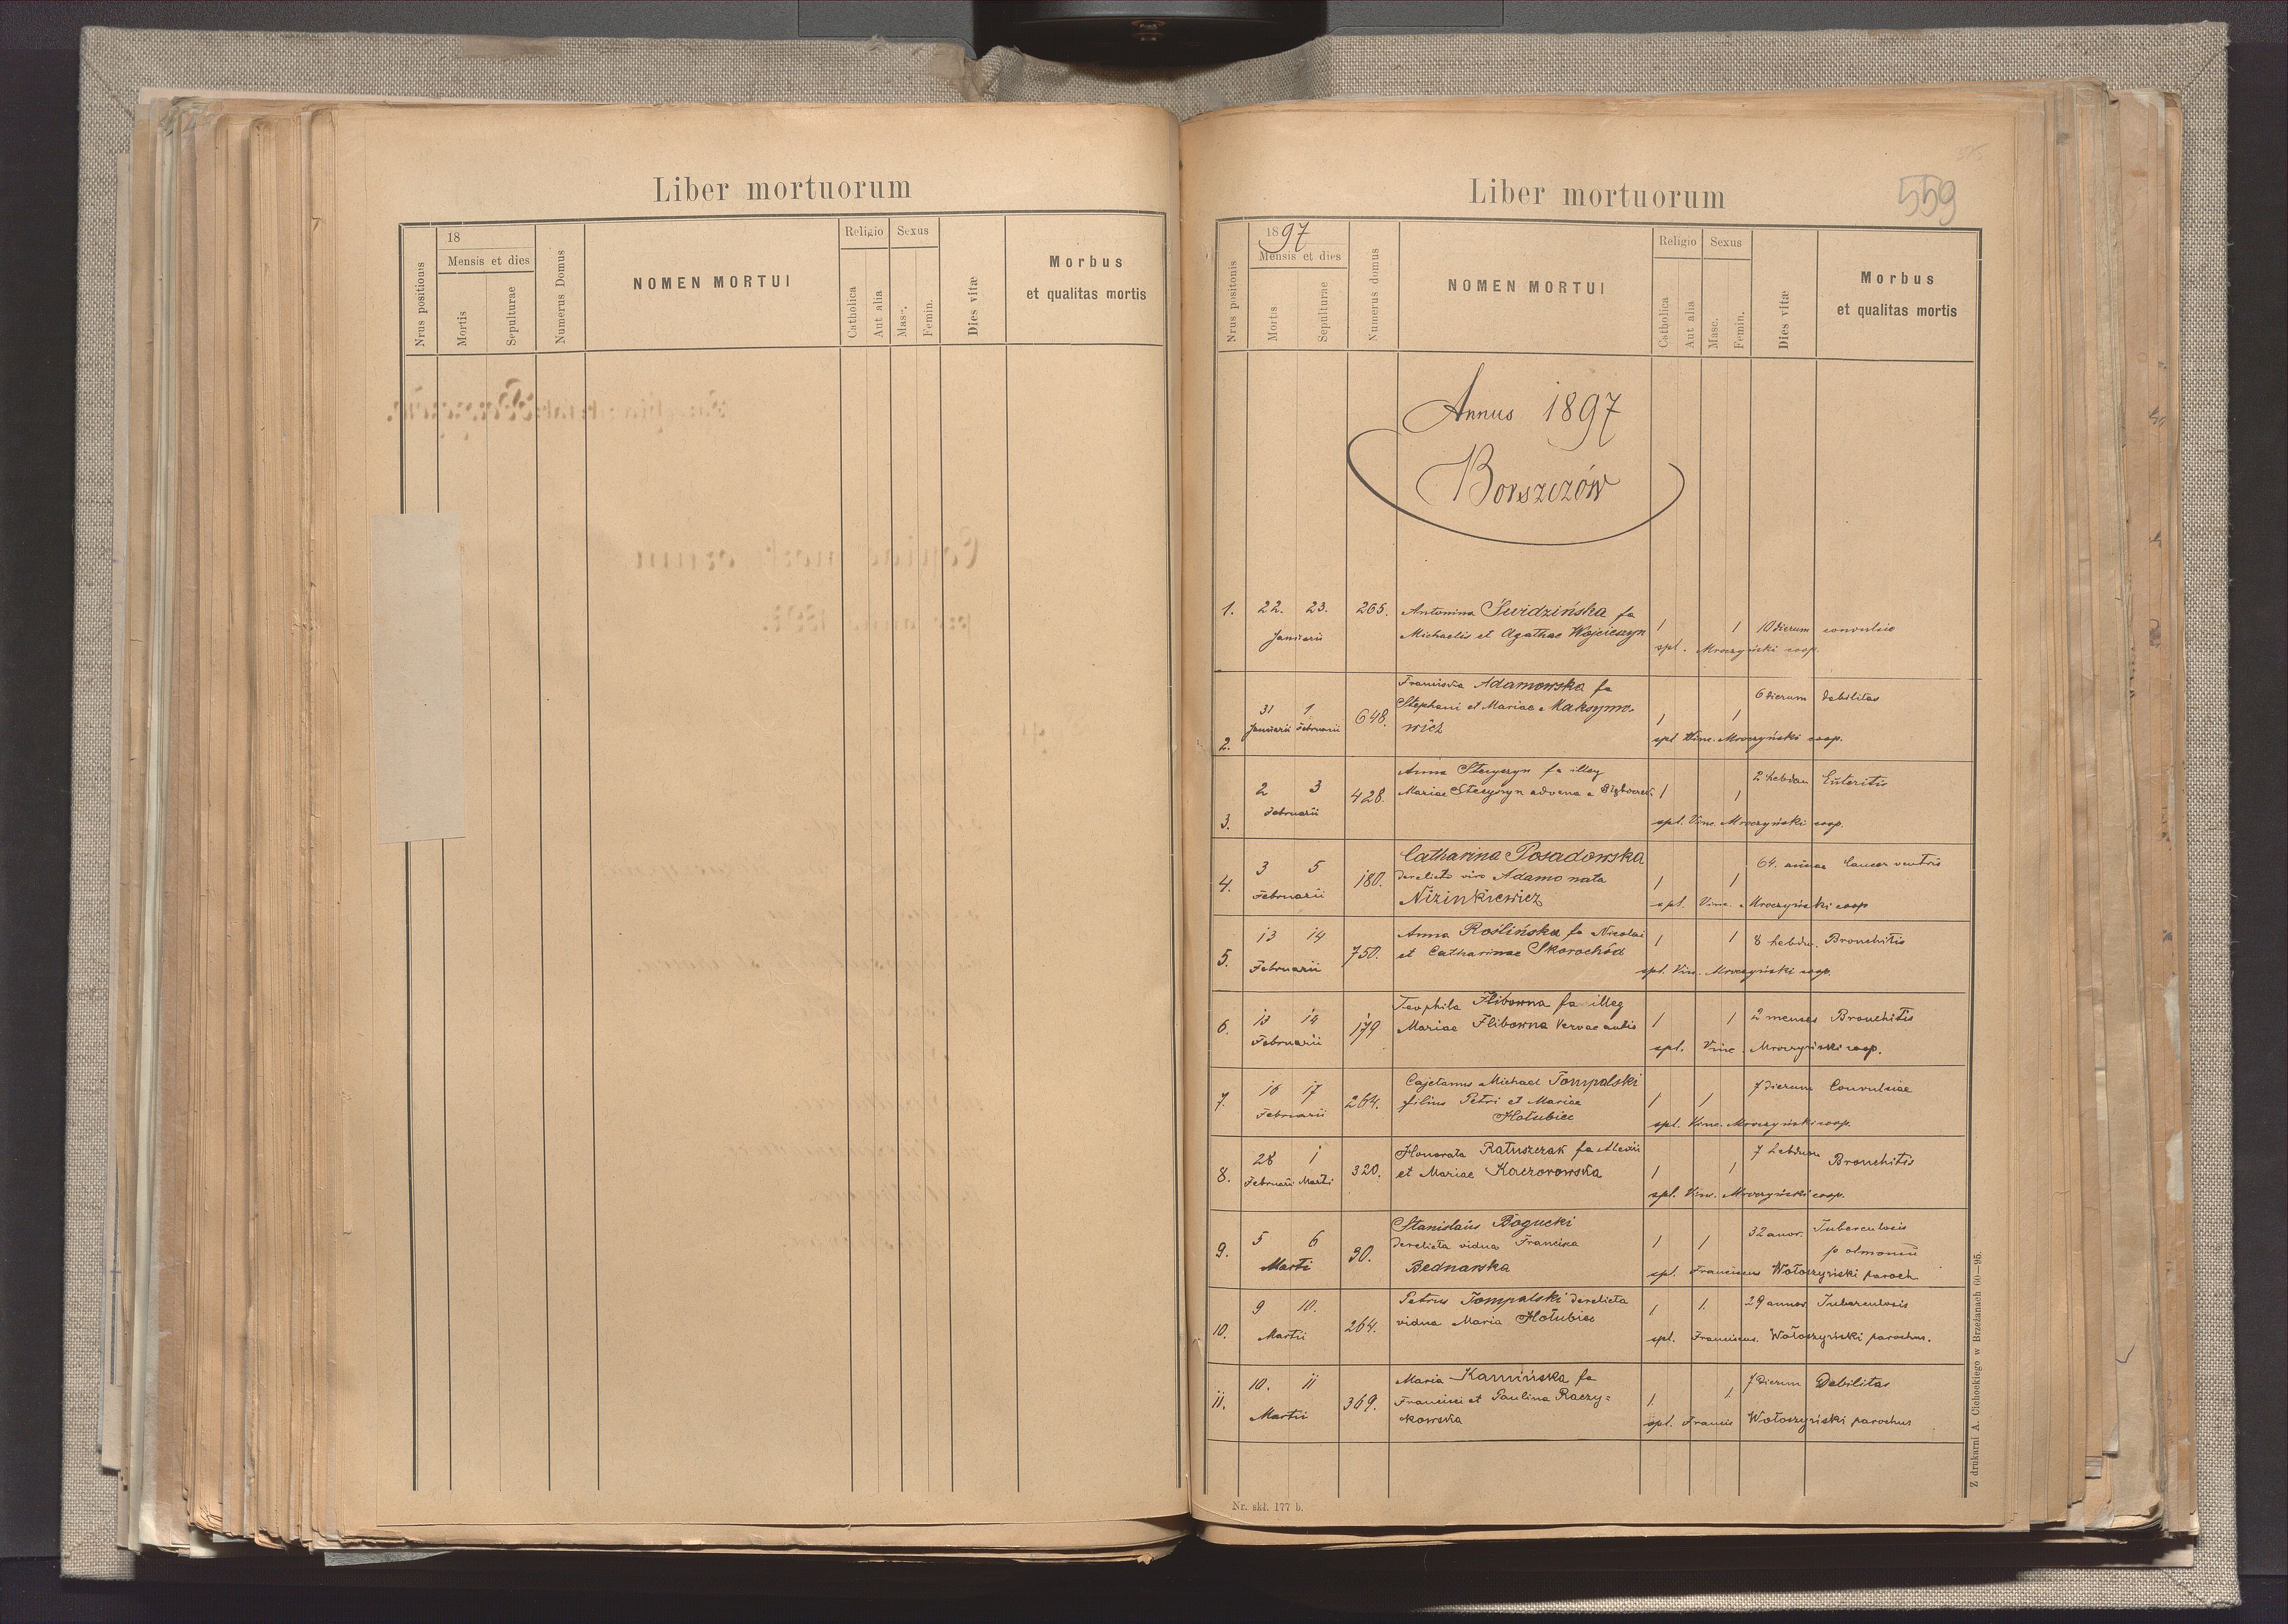 Liber mortuorum
18
Mensis et dies
Nrus positionis
Mortis
Sepulturae
Numerus Domus
NOMEN MORTUI
Religio
Sexus
Catholica
Aut alia
Masc.
Femin.
Dies vitæ
Morbus
et qualitas mortis
559
Liber mortuorum
1897
Mensis et dies
Nrus positonis
Mortis
Sepulturae
Numerus domus
NOMEN MORTUI
Religio
Sexus
Catholica
Aut alia
Masc.
Femin.
Dies vitæ
Morbus
et qualitas mortis
Annus 1897
Borszczów
1. 22. 23. 265. Antonina Świdzińska fa
Januarii Michaelis et Agathae Wojcieszyn 1 1 10 dierum convulsio
spl. Mroczyński coop.
Francisca Adamowska fa 6 dierum debilitas
31 1 648. Stephani et Mariae Maksymo-
Januarii Februarii wicz 1 1
2. spl. Vinc. Mroczyński coop.
Anna Stecyszyn fa illeg 2 hebdom Enteritis
2 3 428. Mariae Stecyszyn advena a 1 1
Februarii
3. spl. Vinc. Mroczyński coop.
Catharina Posadowska
3 5 64. annor Cancer ventris
4. 180. derelicto viro Adamo nata 1 1
Februarii Nizinkiewicz spl. Vinc. Mroczyński coop
13 14 Anna Roślińska fa Nicolai 1 1 8 hebdom. Bronchitis
5. Februarii 750. et Catharinae Skorochód
spl. Vin. Mroczyński coop.
Teophila Flibowna fa illeg
6. 13 14 179 Mariae Flibowna 1 1 2 menses Bronchitis
Februarii spl. Vinc. Mroczyński coop.
Cajetanus Michael Tompalski 7 dierum Convulsiae
7. 16 17 264. filius Petri et Mariae 1 1
Februarii Hołubiec spl. Vinc. Mroczyński coop.
28 1 Honorata Ratuszczak fa Alexii 7 hebdom Bronchitis
8. Februarii Marti 320. et Mariae Kaczorowska 1 1
spl. Vinc. Mroczyński coop.
Stanislaus Bogucki 32 anor. Tuberculosis
9. 5 6 30. derelicta vidua Francisca 1 1 polmonii
Marti Bednarska spl. Franciscus Wołoszyński paroch
9 10. Petrus Tompalski derelicta 1. 1. 29 annor Tuberculosis
10. Martii 264. vidua Maria Hołubiec
spl. Franciscus. Wołoszyński parochus.
10. 11 Maria Kamińska fa 7 dierum Debilitas
11. 369. Francisci et Paulina Raczy= 1. 1
Martii kowska spl. Francis Wołoszyński parochus
Nr. skł. 177 b.
Z drukarni A. Cichockiego w Brzeżanach 60—95.